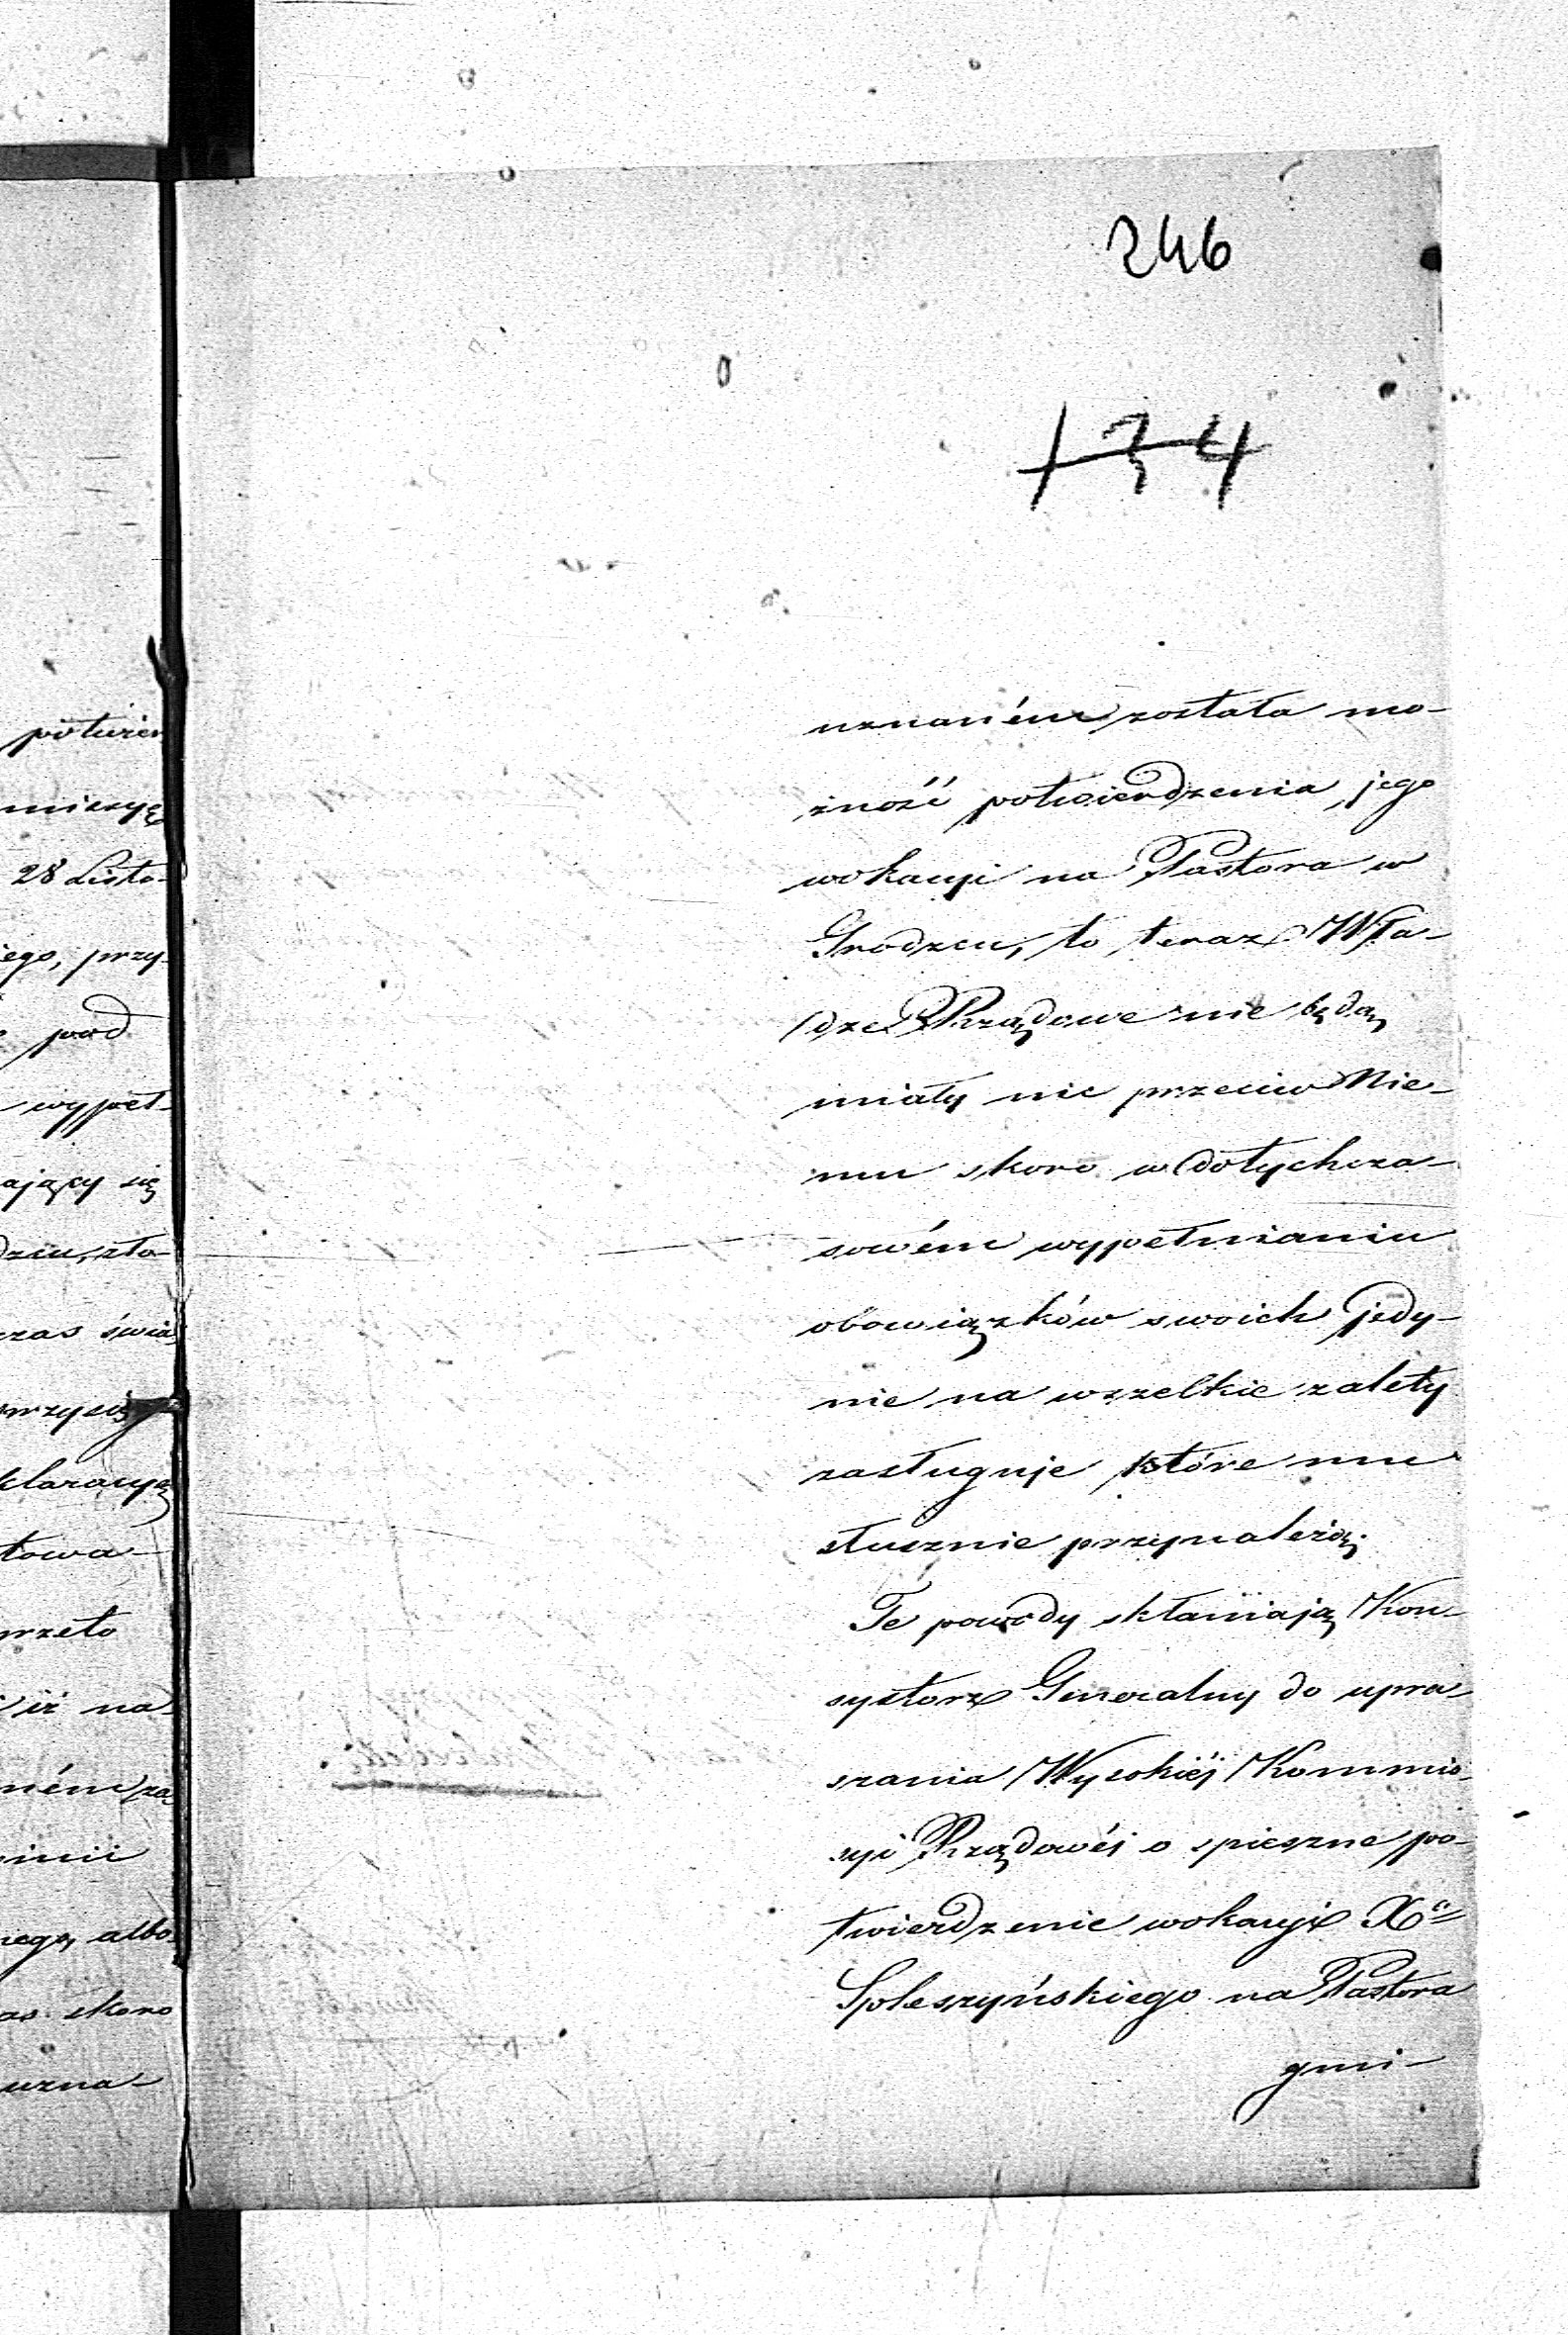 246
134
uznaném została mo-
żność potwierdzenia jego
wokacyi na Pastora w
Grodzcu, to teraz Wła-
dze Rządowe nie będą
miały nic przeciw Nie-
mu skoro w dotychcza-
sowém wypełnianiu
obowiązków swoich jedy-
nie na wszelkie zalety
zasługuje które mu
słusznie przynależą.
Te powody skłaniają Kon-
systorz Generalny do upra-
szania Wysokiéj Kommis-
syi Rządowéj o spieszne po-
twierdzenie wokacyi Xa
Spleszyńskiego na Pastora
gmi-
potwier
miesyę
28 Listo-
iego, przy-
pod
wypeł-
ający się
dzcu, zło-
czas świa
przysię
klaracyą
towa-
przeto
iż na
ném za
inii
niego, albo
as skoro
uzna-